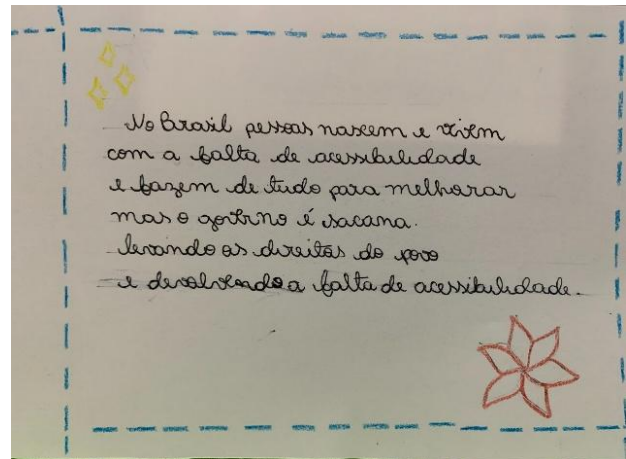 No Brasil pessoas nascem e vivem
com a falta de acessibilidade
e fazem de tudo para melhorar
mas o governo é sacana.
levando os direitos do povo
e devolvendo a falta de acessibilidade.